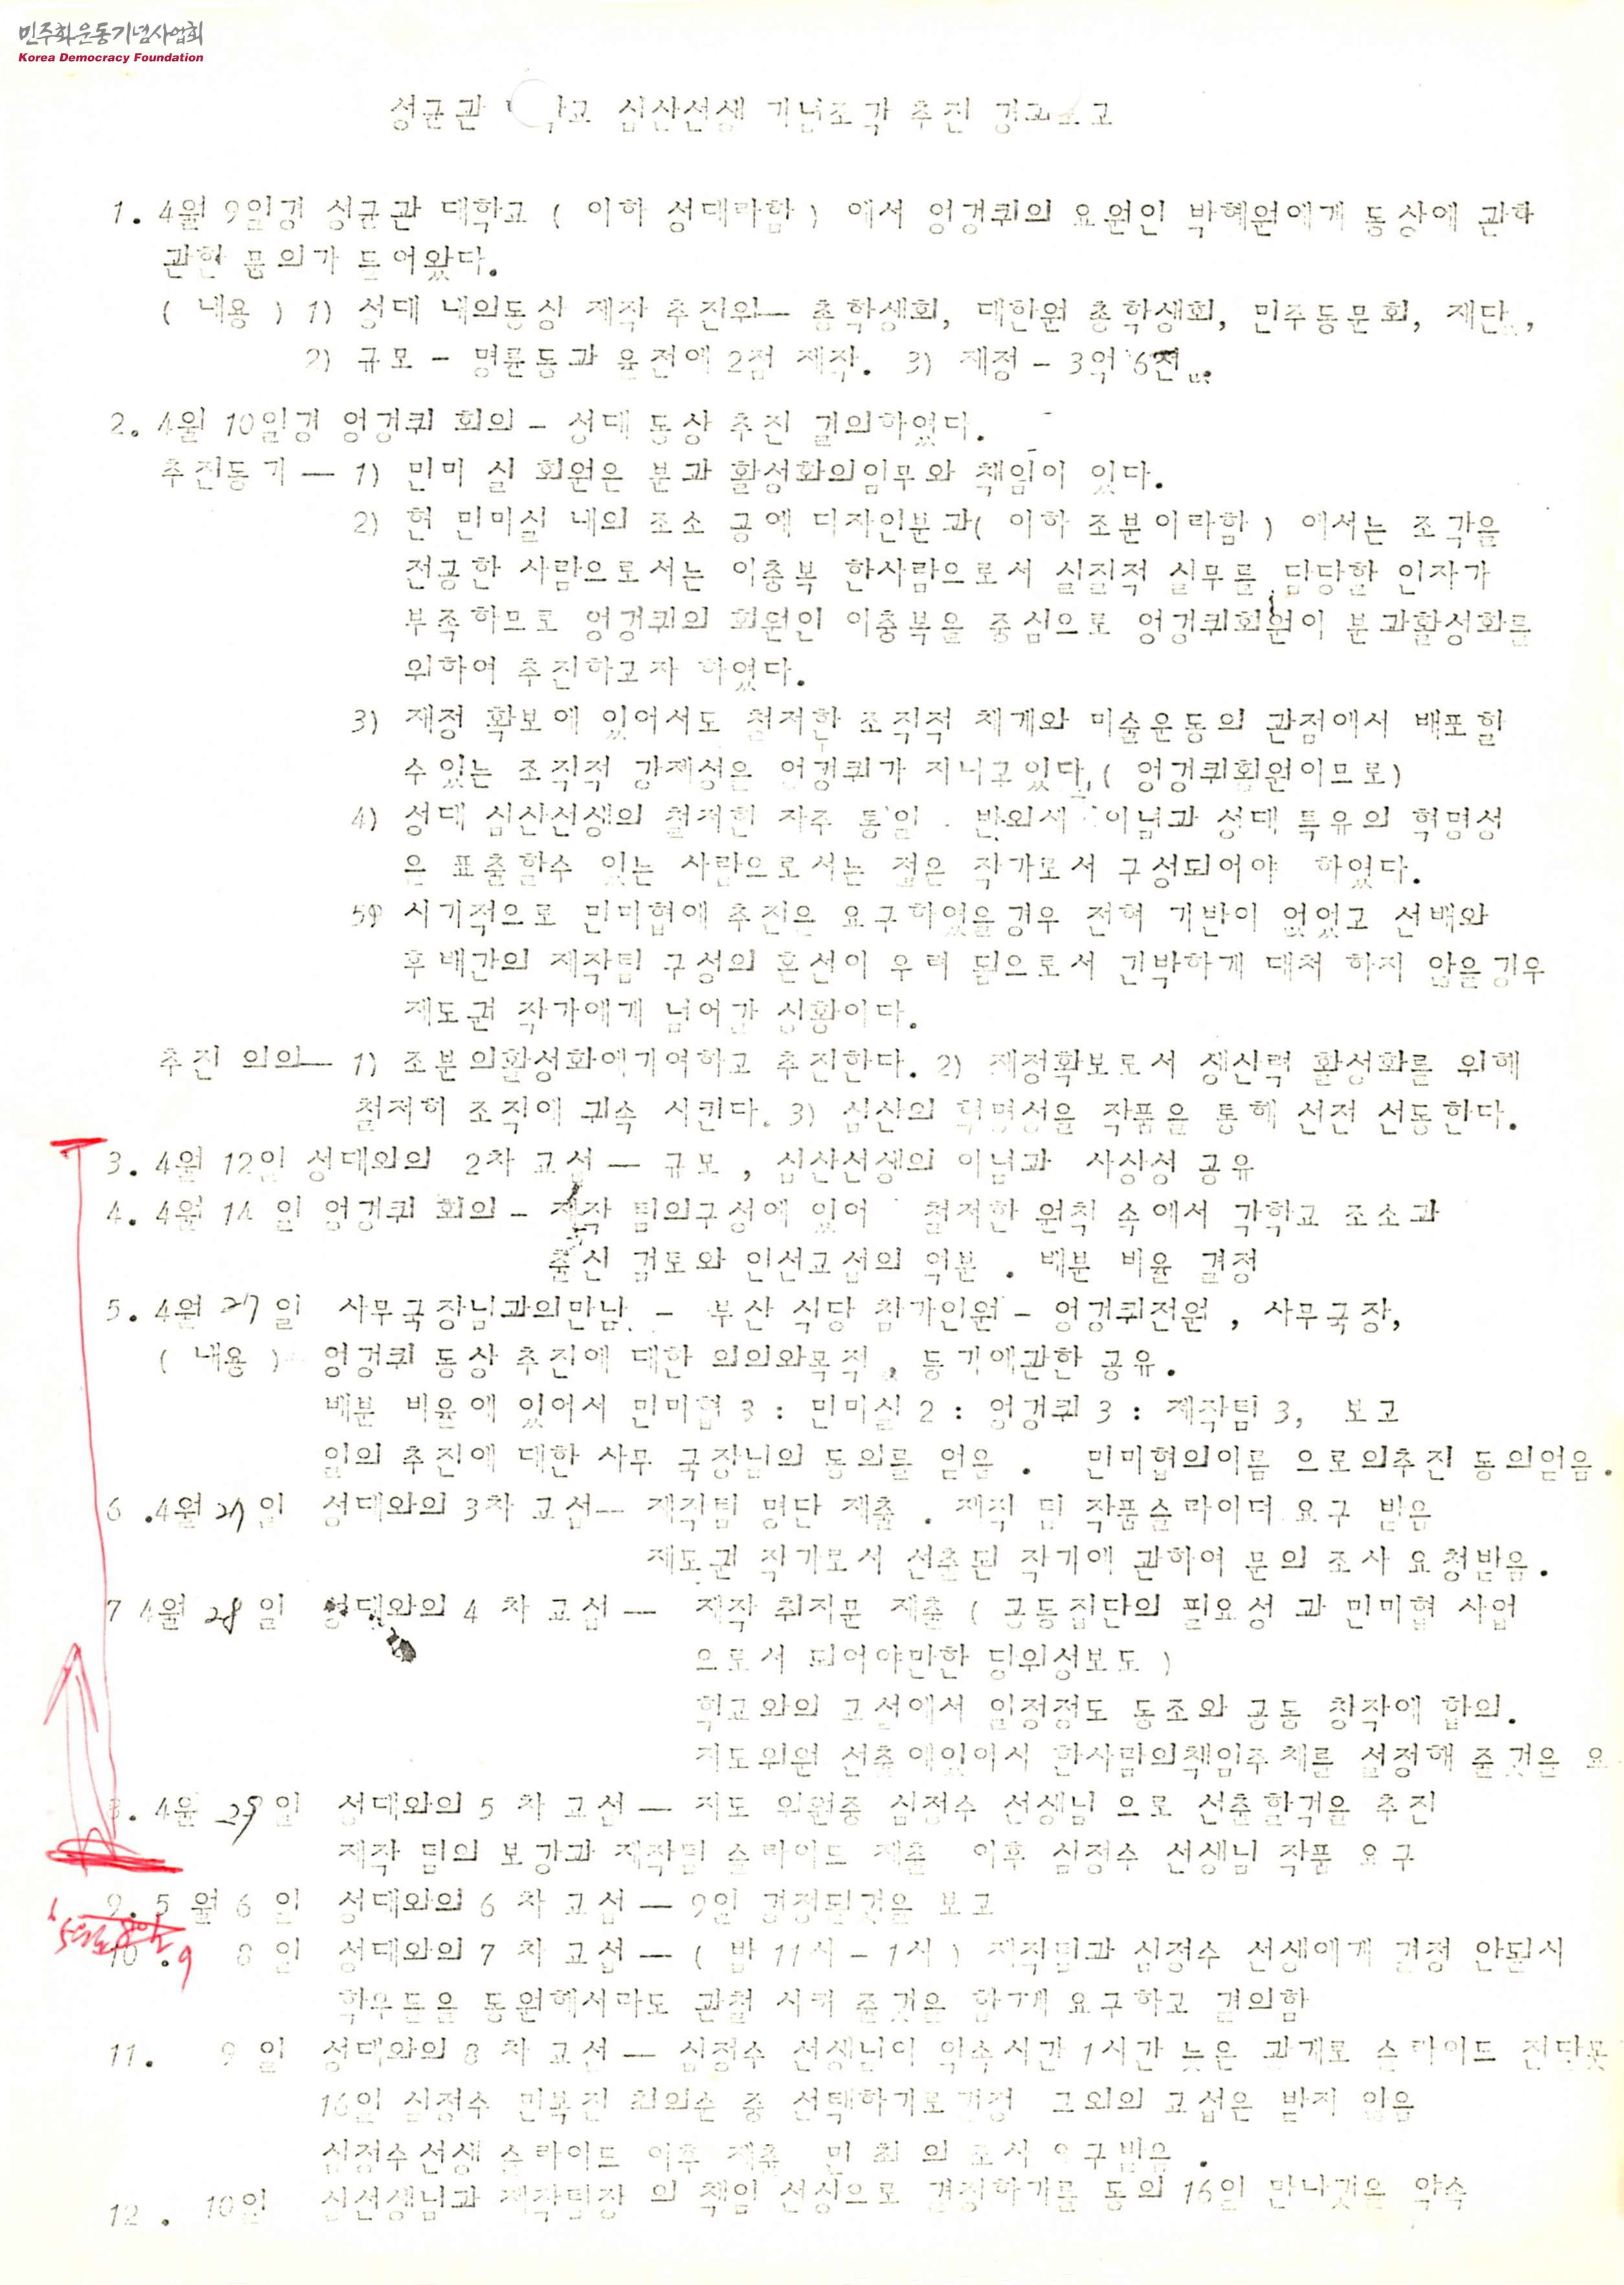 민주화운동기념사업회
Korea Democracy Foundation
성균관 학교 심산선생 기념조각 추진 경과보고
1. 4월 9일경 성균관 대학교 ( 이하 성대라함 ) 에서 엉겅퀴의 요원인 박혜원에게 동상에 관하
관한 문의가 들어왔다.
( 내용 ) 1) 성대 내의동상 제작 추진위— 총학생회, 대학원 총학생회, 민주동문회, 재단,
2) 규모 - 명륜동과 율전에 2점 제작. 3) 재정 - 3억 6천
2. 4월 10일경 엉겅퀴 회의 - 성대 동상 추진 결의하였다.
추진동기 — 1) 민미 실 회원은 분과 활성화의임무와 책임이 있다.
2) 현 민미실 내의 조소 공예 디자인분과( 이하 조분이라함 ) 에서는 조각을
전공한 사람으로서는 이충복 한사람으로서 실질적 실무를 담당할 인자가
부족하므로 엉겅퀴의 회원인 이충복을 중심으로 엉겅퀴회원이 분과활성화를
위하여 추진하고자 하였다.
3) 재정 확보에 있어서도 철저한 조직적 체계와 미술운동의 관점에서 배포할
수있는 조직적 강제성을 엉겅퀴가 지니고있다.( 엉겅퀴회원이므로)
4) 성대 심산선생의 철저한 자주 통일 . 반외세 이념과 성대 특유의 혁명성
을 표출할수 있는 사람으로서는 젊은 작가로서 구성되어야 하였다.
5) 시기적으로 민미협에 추진을 요구하였을경우 전혀 기반이 없었고 선배와
후배간의 제작팀 구성의 혼선이 우려 됨으로서 긴박하게 대처 하지 않을경우
제도권 작가에게 넘어갈 상황이다.
추진 의의— 1) 조분의활성화에기여하고 추진한다. 2) 재정확보로서 생산력 활성화를 위해
철저히 조직에 귀속 시킨다. 3) 심산의 혁명성을 작품을 통해 선전 선동한다.
3. 4월 12일 성대와의 2차 교섭 — 규모 , 심산선생의 이념과 사상성 공유
4. 4월 14 일 엉겅퀴 회의 - 제작 팀의구성에 있어 철저한 원칙 속에서 각학교 조소과
출신 검토와 인선교섭의 역분 . 배분 비율 결정
5. 4월 27 일 사무국장님과의만남 - 부산 식당 참가인원 - 엉겅퀴전원 , 사무국장,
( 내용 ) 엉겅퀴 동상 추진에 대한 의의와목적 , 동기에관한 공유.
배분 비율에 있어서 민미협 3 : 민미실 2 : 엉겅퀴 3 : 제작팀 3, 보고
일의 추진에 대한 사무 국장님의 동의를 얻음 . 민미협의이름 으로의추진 동의얻음.
6 .4월 27 일 성대와의 3차 교섭— 제작팀 명단 제출 . 제작 팀 작품슬라이더 요구 받음
제도권 작가로서 선출된 작가에 관하여 문의 조사 요청받음.
7 4월 28 일 성대와의 4 차 교섭 — 제작 취지문 제출 ( 공동집단의 필요성 과 민미협 사업
으로서 되어야만한 당위성보도 )
학교와의 교섭에서 일정정도 동조와 공동 창작에 합의.
지도위원 선출에있어서 한사람의책임주체를 설정해 줄것을 요
8. 4월 29 일 성대와의 5 차 교섭 — 지도 위원중 심정수 선생님 으로 선출할것을 추진
제작 팀의 보강과 제작팀 슬라이드 제출 이후 심정수 선생님 작품 요구
9. 5 월 6 일 성대와의 6 차 교섭 — 9일 결정된것을 보고
10 .9 8 일 성대와의 7 차 교섭 — ( 밤 11시 - 1시 ) 제작팀과 심정수 선생에게 결정 안될시
학우들을 동원해서라도 관철 시켜 줄것을 함께 요구하고 결의함
11. 9 일 성대와의 8 차 교섭 — 심정수 선생님이 약속시간 1시간 늦은 관계로 슬라이드 전달못
16일 심정수 민복진 최의순 중 선택하기로결정 그외의 교섭은 받지 않음
심정수선생 슬라이드 이후 제출 민 최 의 조사 요구받음 .
12 . 10일 심선생님과 제작팀장 의 책임 선상으로 결정하기를 동의 16일 만나것을 약속